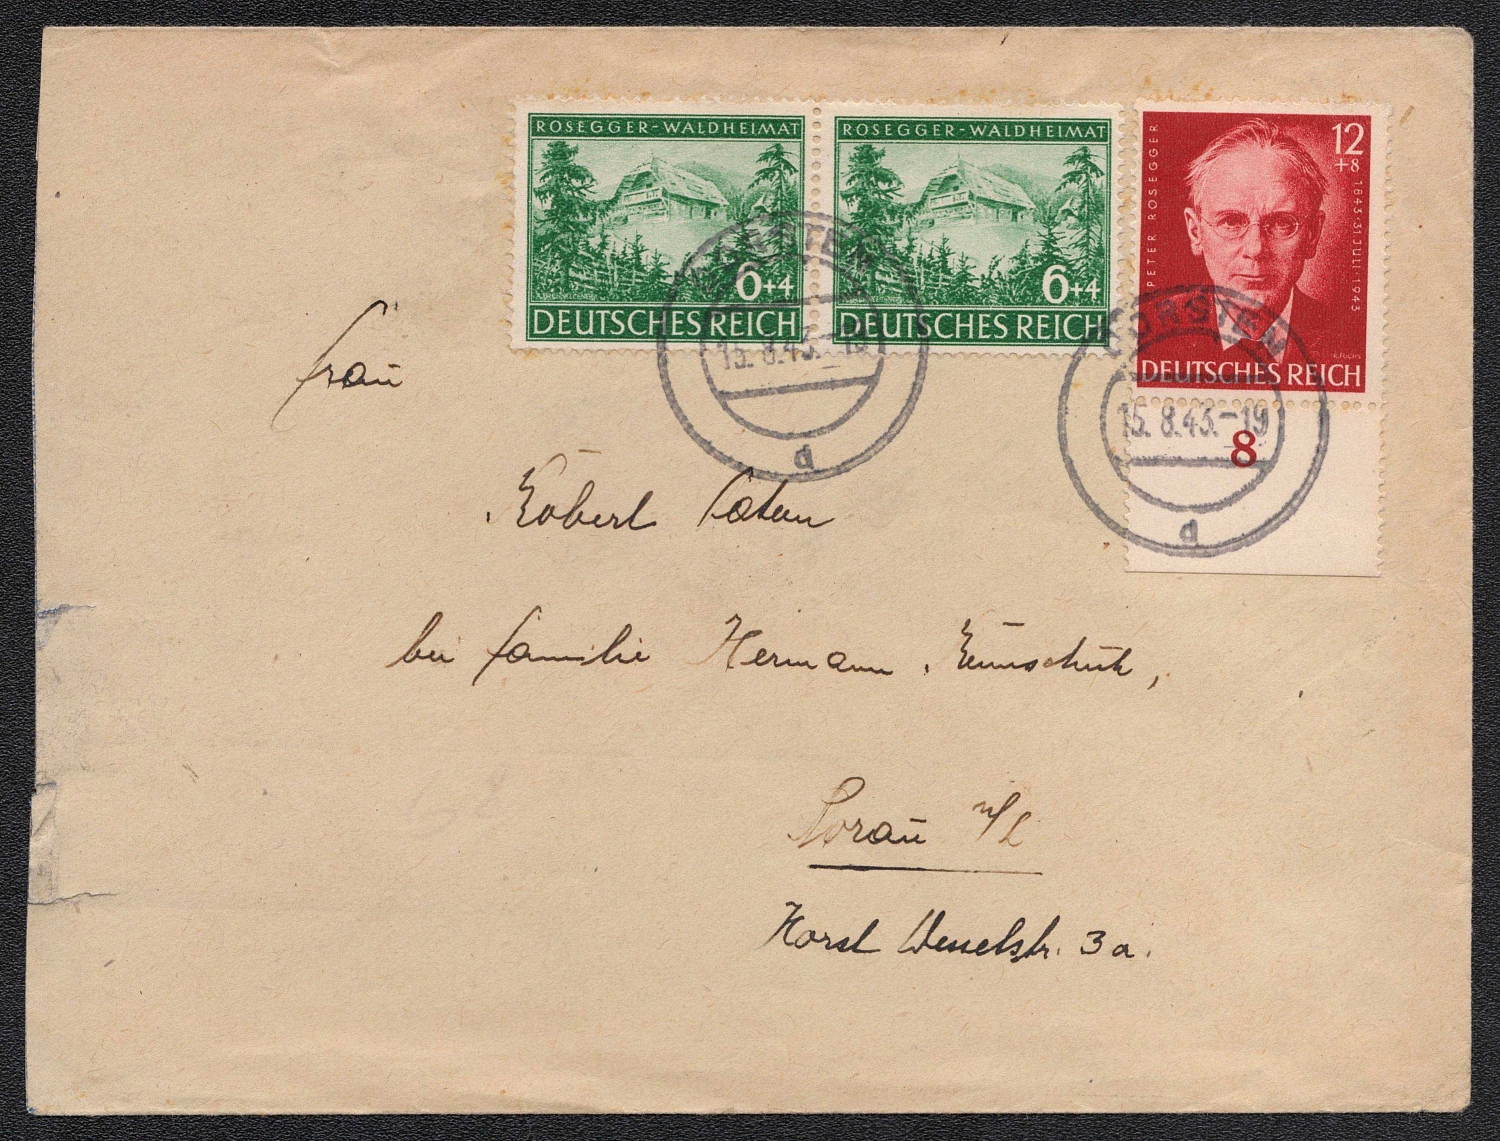 ROSEGGER-WALDHEIMAT
6+4
DEUTSCHES REICH
ROSEGGER-WALDHEIMAT
6+4
DEUTSCHES REICH
PETER ROSEGGER
12
+8
1843·31·JULI·1943
DEUTSCHES REICH
8
FORSTEN
15.8.43.-19
d
FORSTEN
15.8.43.-19
d
Frau
Robert
bei Familie Hermann
Sorau N/L
Horst Wesselstr. 3a.